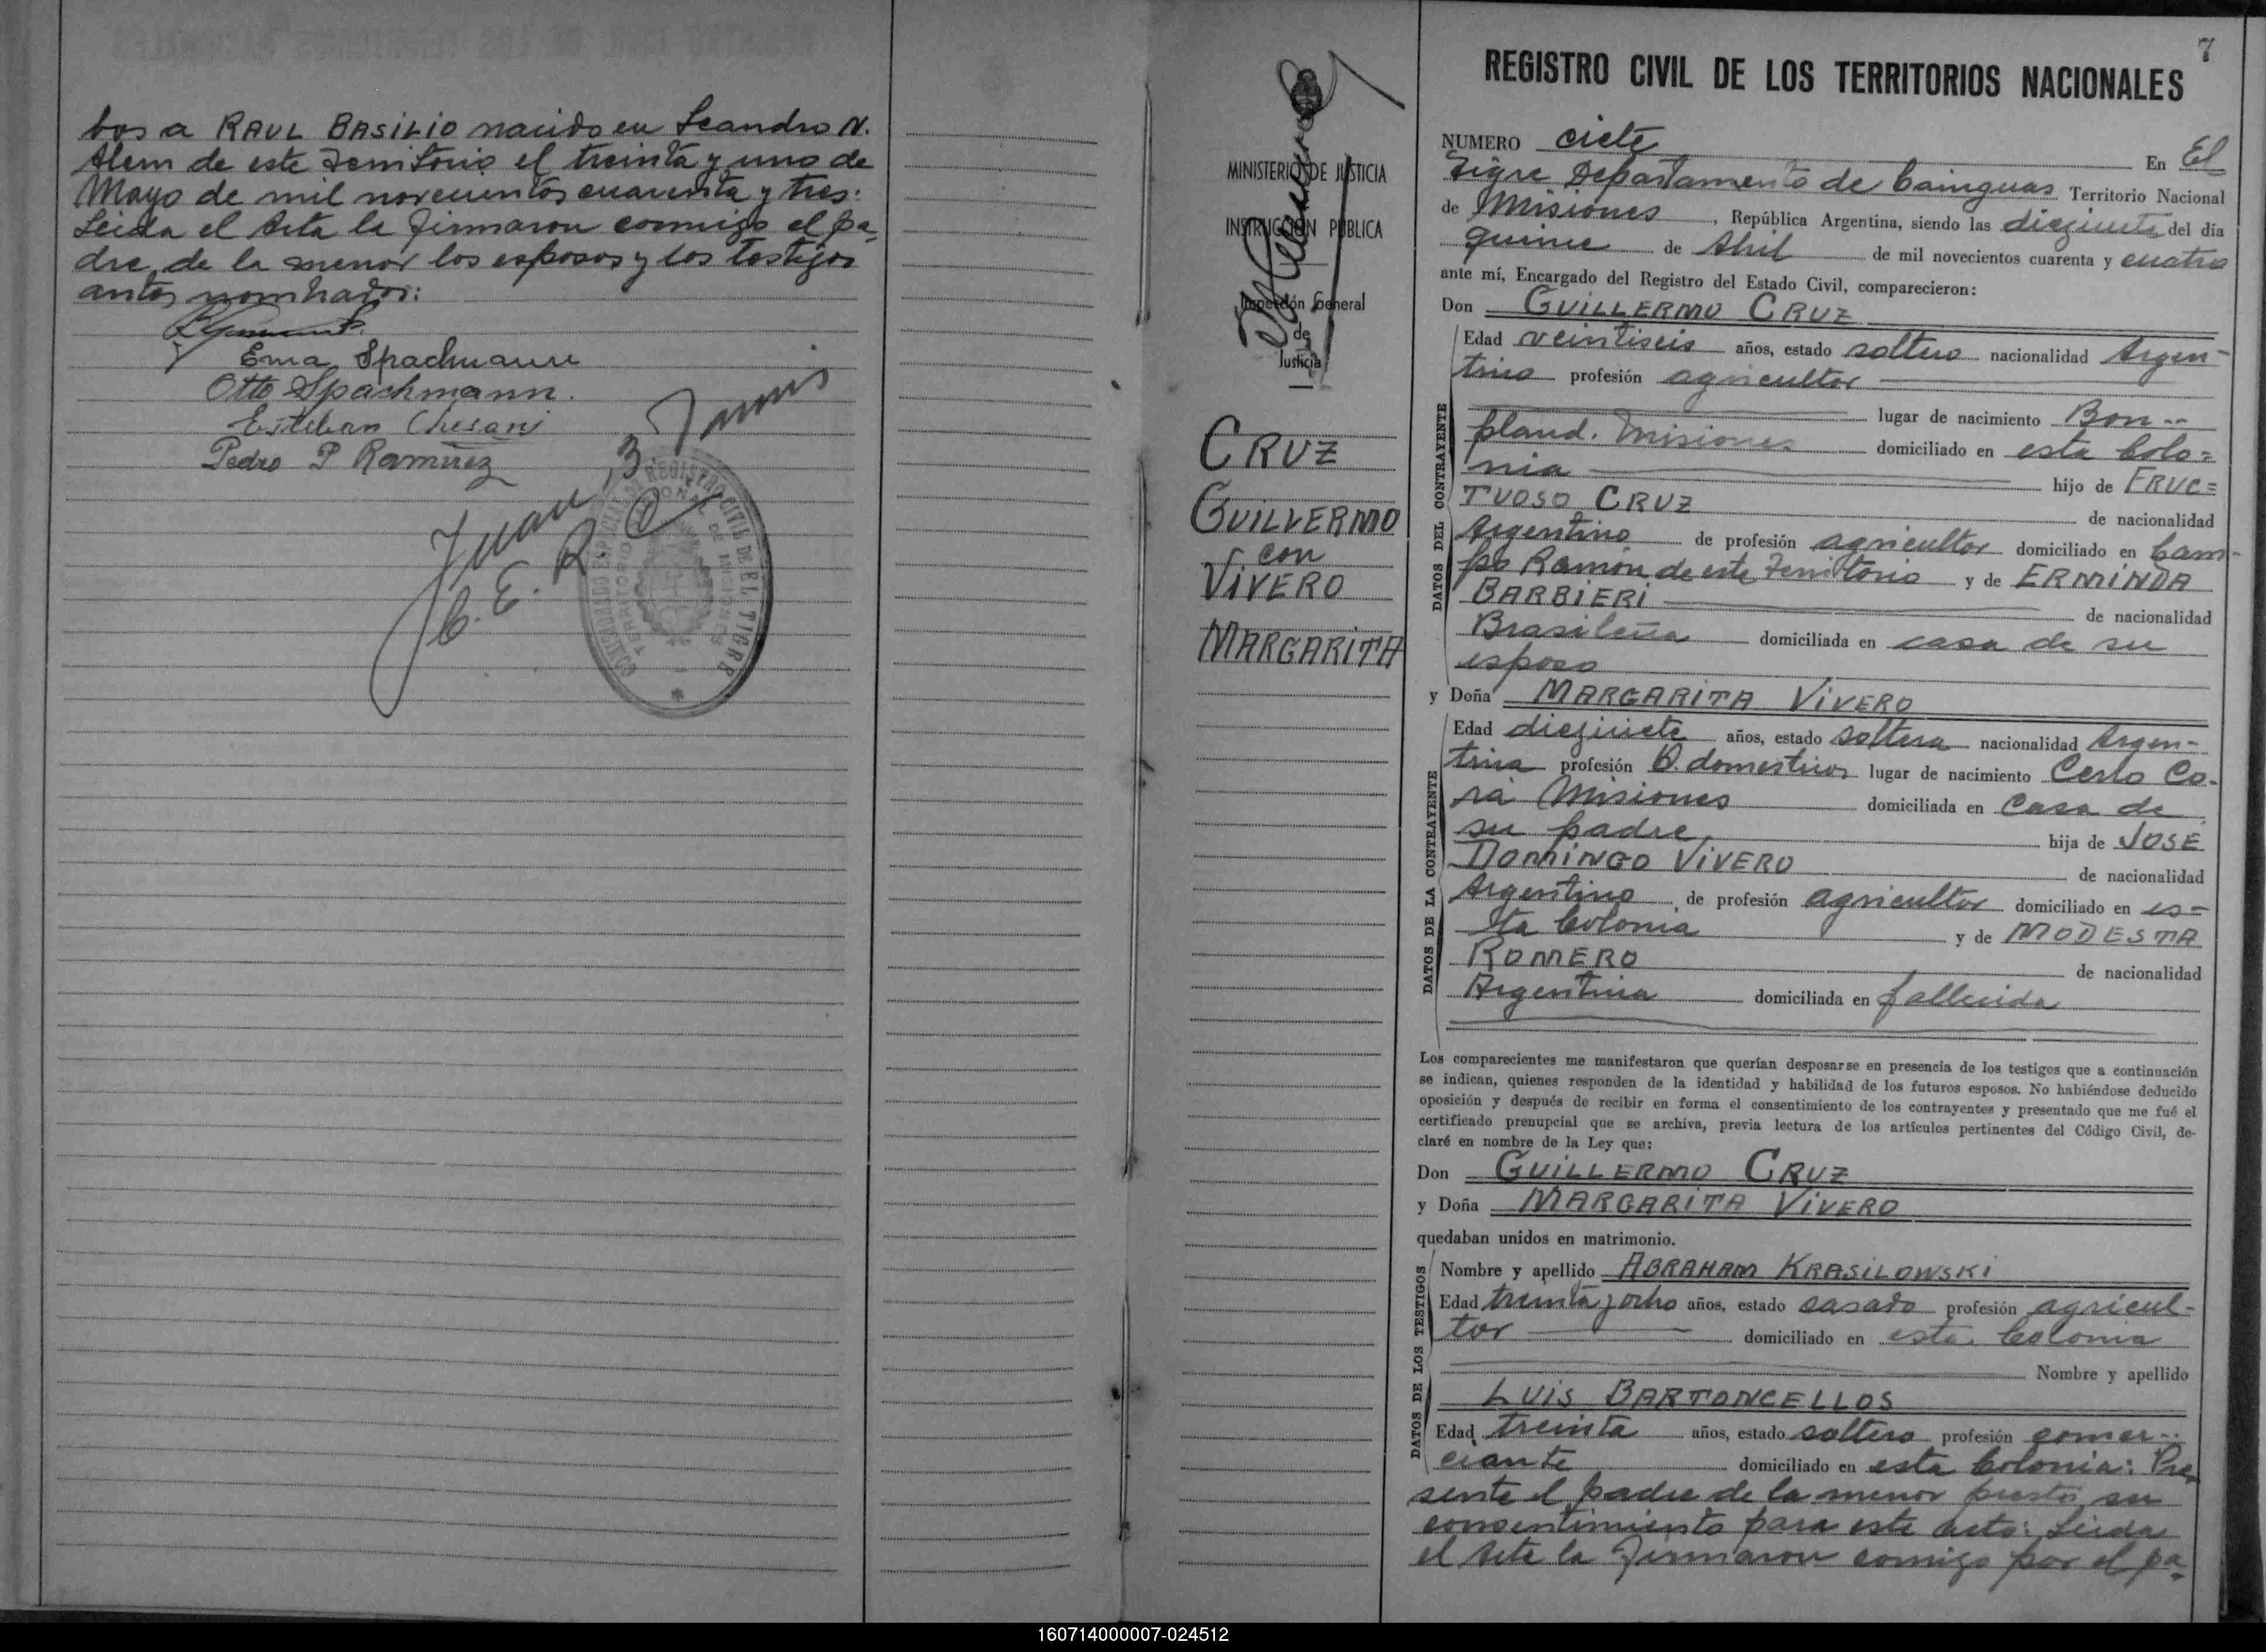 bos a RAUL BASILIO nacido en Leandro N.
Alem de este Territorio el treinta y uno de
Mayo de mil novecientos cuarenta y tres:
Leida el Acta la firmaron conmigo el pa-
dre de la menor los esposos y los testigos
antes nombrados:
Ema Spachmann
Otto Spachmann.
Esteban Chesani
Pedro P Ramirez
Juan B.
C. E. R C
REGISTRO CIVIL DE EL TIGRE
TERRITORIO NACIONAL DE MISIONES
7
MINISTERIO DE JUSTICIA
INSTRUCCIÓN PÚBLICA
Inspección General
de
Justicia
CRUZ
GUILLERMO
con
VIVERO
MARGARITA
REGISTRO CIVIL DE LOS TERRITORIOS NACIONALES
NUMERO ciete En El
Tigre Departamento de Cainguas Territorio Nacional
de Misiones, República Argentina, siendo las diezisiete del día
quince de Abril de mil novecientos cuarenta y cuatro
ante mí, Encargado del Registro del Estado Civil, comparecieron:
Don GUILLERMO CRUZ
DATOS DEL CONTRAYENTE
Edad veintiseis años, estado soltero nacionalidad Argen-
tino profesión agricultor
lugar de nacimiento Bon--
pland. Misiones domiciliado en esta Colo=
nia hijo de FRUC=
TUOSO CRUZ de nacionalidad
Argentino de profesión agricultor domiciliado en Cam-
po Ramón de este Territorio y de ERMINDA
BARBIERI de nacionalidad
Brasileña domiciliada en casa de su
esposo
y Doña MARGARITA VIVERO
DATOS DE LA CONTRAYENTE
Edad diezisiete años, estado soltera nacionalidad Argen-
tina profesión Q. domesticos lugar de nacimiento Cerro Co-
rá Misiones domiciliada en Casa de
su padre hija de JOSE
DOMINGO VIVERO de nacionalidad
Argentino de profesión agricultor domiciliado en es-
ta Colonia y de MODESTA
ROMERO de nacionalidad
Argentina domiciliada en fallecida
Los comparecientes me manifestaron que querían desposarse en presencia de los testigos que a continuación
se indican, quienes responden de la identidad y habilidad de los futuros esposos. No habiéndose deducido
oposición y después de recibir en forma el consentimiento de los contrayentes y presentado que me fué el
certificado prenupcial que se archiva, previa lectura de los artículos pertinentes del Código Civil, de-
claré en nombre de la Ley que:
Don GUILLERMO CRUZ
y Doña MARGARITA VIVERO
quedaban unidos en matrimonio.
DATOS DE LOS TESTIGOS
Nombre y apellido ABRAHAM KRASILOWSKI
Edad treinta y ocho años, estado casado profesión agricul-
tor domiciliado en esta Colonia
Nombre y apellido
LUIS BARTONCELLOS
Edad treinta años, estado soltero profesión comer--
ciante domiciliado en esta Colonia: Pre-
sente el padre de la menor prestó su
consentimiento para este acto: Leida
el Acta la firmaron comigo por el pa-
160714000007-024512